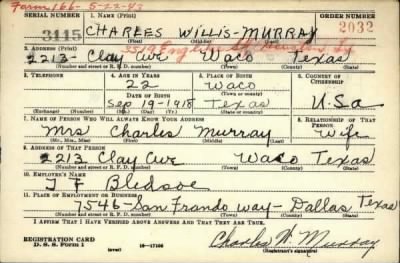 Form 166- 5-22-43
SERIAL NUMBER 1. NAME (Print) ORDER NUMBER
3115 CHARLES WILLIS-MURRAY 2032
(First) (Middle) (Last)
2. ADDRESS (Print)
2213- Clay Ave Waco Texas
(Number and street or R. F. D. number) (Town) (County) (State)
3. TELEPHONE 4. AGE IN YEARS 5. PLACE OF BIRTH 6. COUNTRY OF CITIZENSHIP
22 Waco
DATE OF BIRTH (Town or county)
Sep 19-1918 Texas U.S.a
(Exchange) (Number) (Mo.) (Day) (Yr.) (State or country)
7. NAME OF PERSON WHO WILL ALWAYS KNOW YOUR ADDRESS 8. RELATIONSHIP OF THAT PERSON
Mrs Charles Murray Wife
(Mr., Mrs., Miss) (First) (Middle) (Last)
9. ADDRESS OF THAT PERSON
2213 Clay Ave Waco Texas
(Number and street or R. F. D. number) (Town) (County) (State)
10. EMPLOYER'S NAME
J F Bledsoe
11. PLACE OF EMPLOYMENT OR BUSINESS
7546-San Frando way-Dallas Texas
(Number and street or R. F. D. number) (Town) (County) (State)
I AFFIRM THAT I HAVE VERIFIED ABOVE ANSWERS AND THAT THEY ARE TRUE.
REGISTRATION CARD
D. S. S. Form 1 Charles W. Murray
(Registrant's signature)